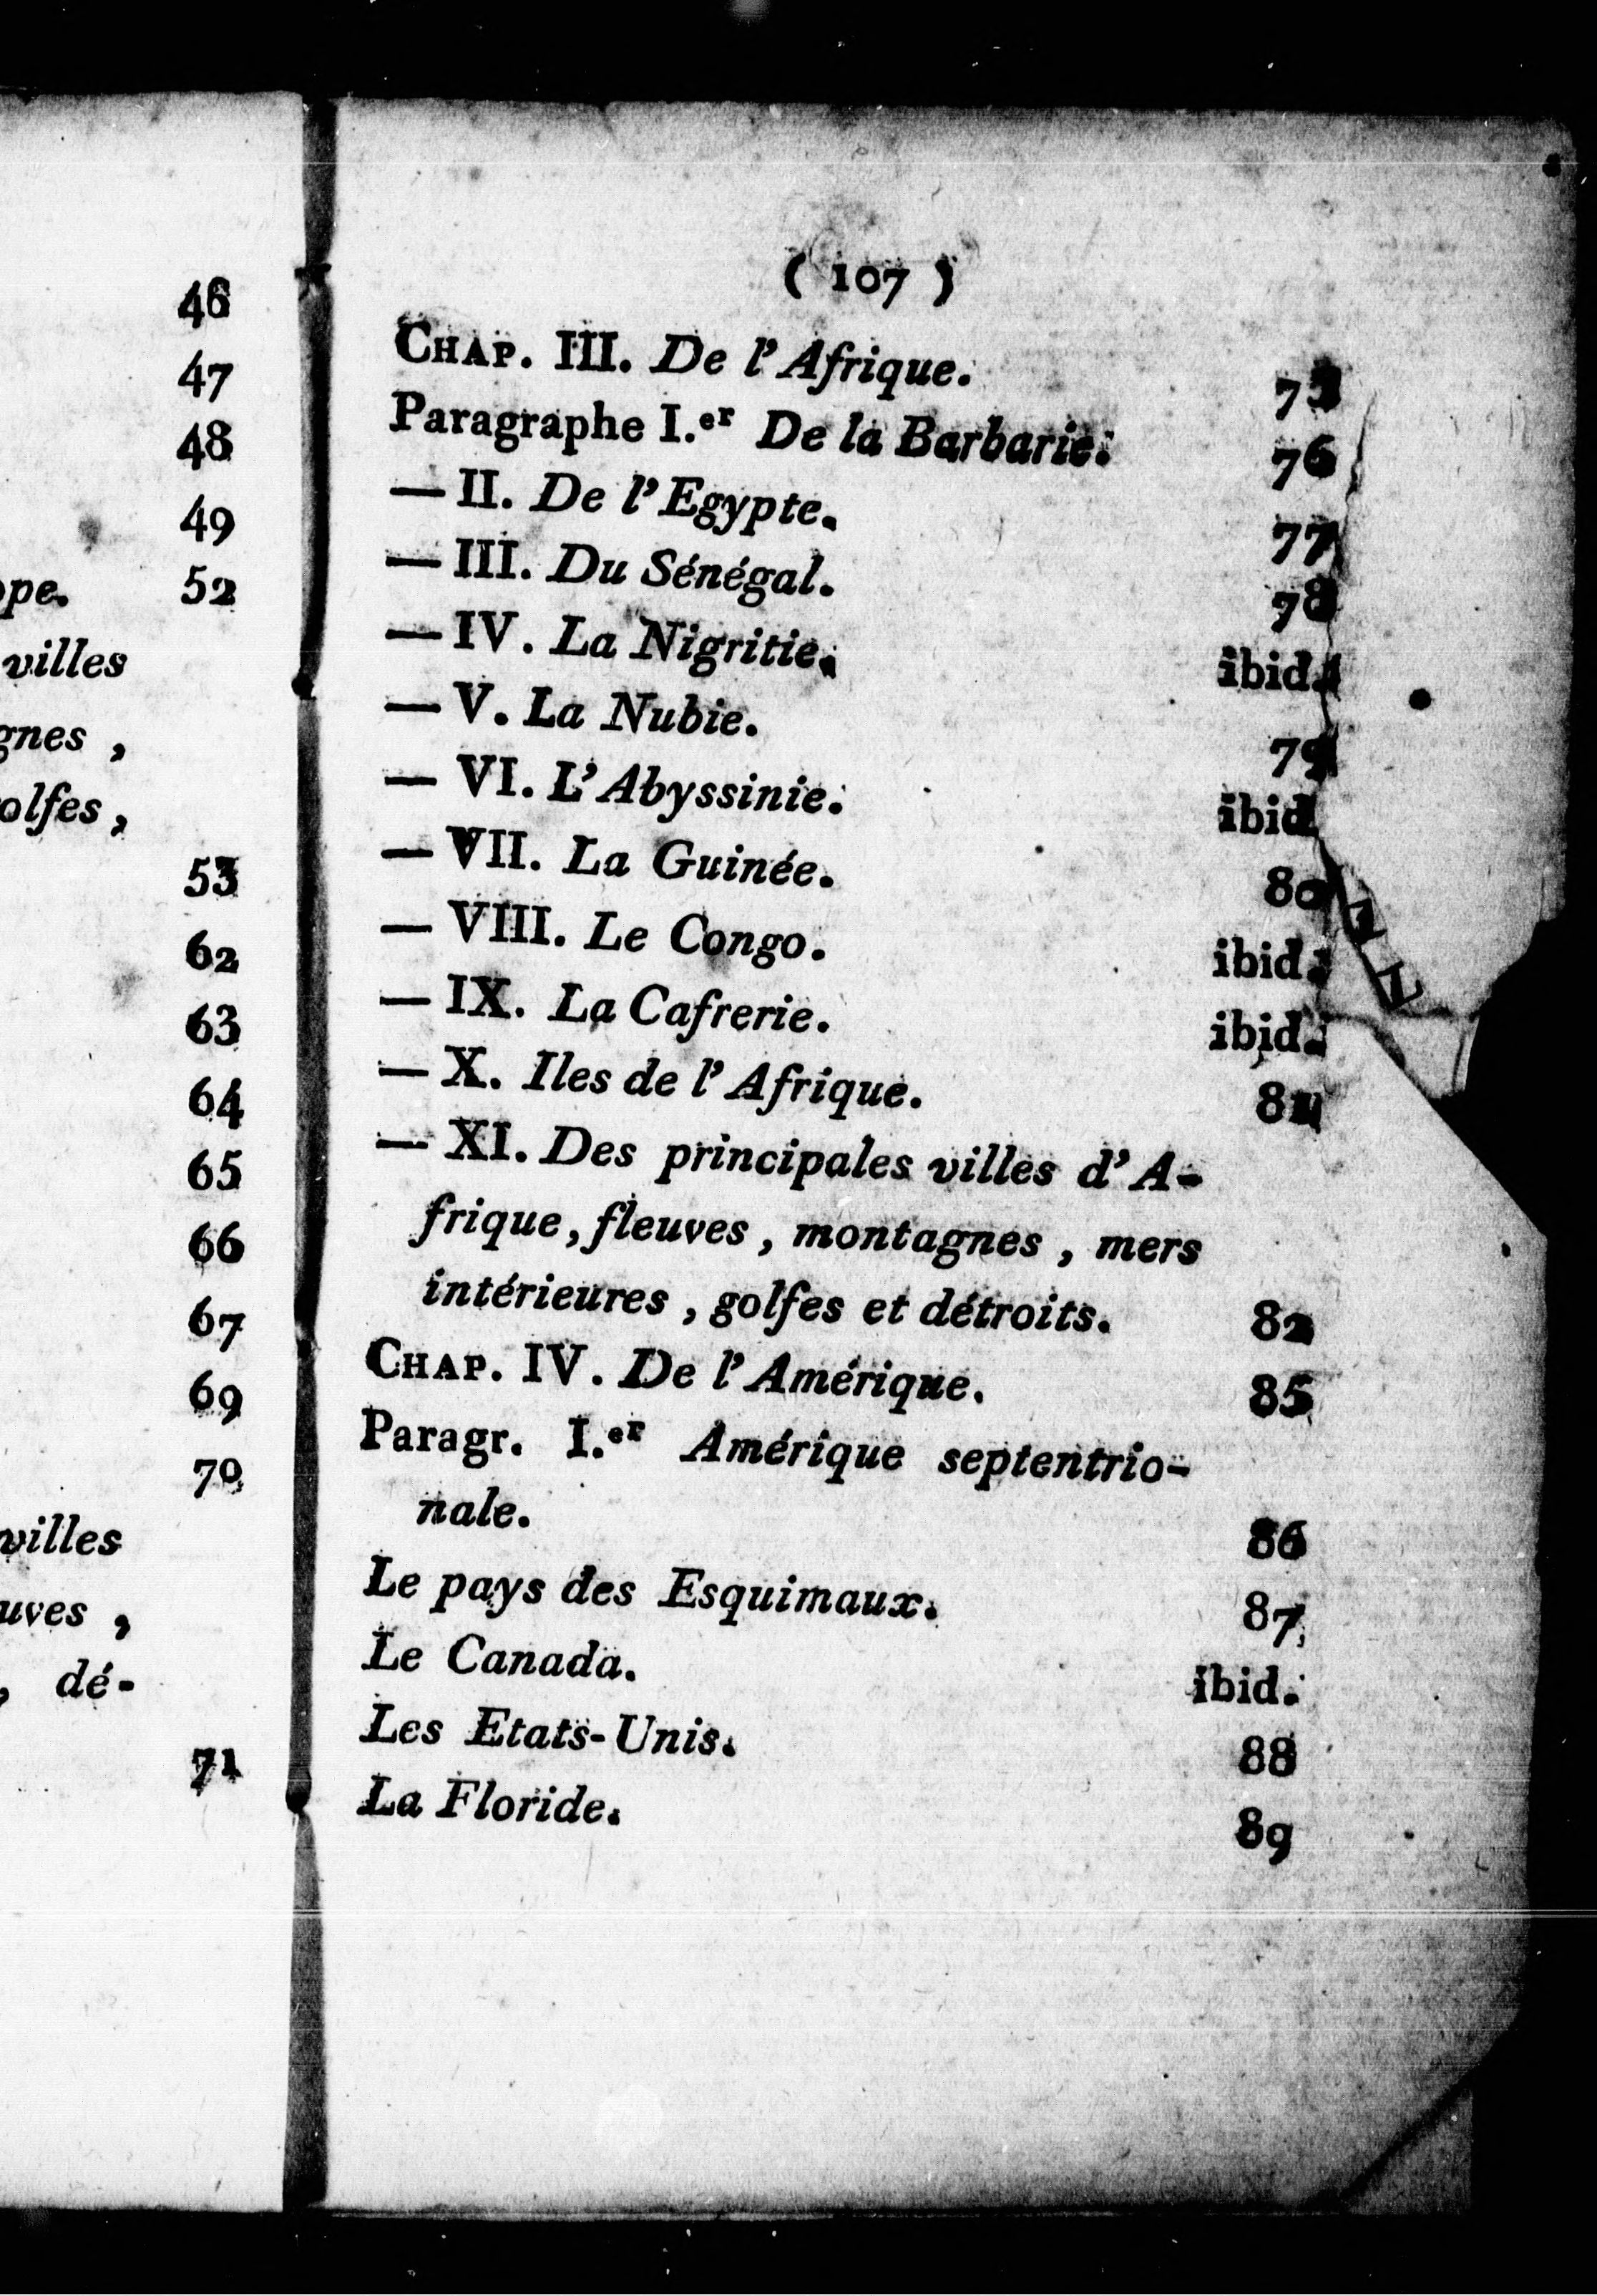 46
47
48
49
ope. 52
villes
gnes ,
olfes ,
53
62
63
64
65
66
67
69
70
villes
uves ,
, dé-
71
( 107 )
CHAP. III. De l'Afrique.
Paragraphe I.er De la Barbarie. 76
— II. De l'Egypte. 77
— III. Du Sénégal. 78
— IV. La Nigritie. ibid.
— V. La Nubie. 79
— VI. L'Abyssinie. ibid
— VII. La Guinée. 80
— VIII. Le Congo. ibid.
— IX. La Cafrerie. ibid.
— X. Iles de l'Afrique.
— XI. Des principales villes d'A-
frique, fleuves, montagnes, mers
intérieures, golfes et détroits. 82
CHAP. IV. De l'Amérique. 85
Paragr. I.er Amérique septentrio-
nale. 86
Le pays des Esquimaux. 87
Le Canada. ibid.
Les Etats-Unis. 88
La Floride. 89